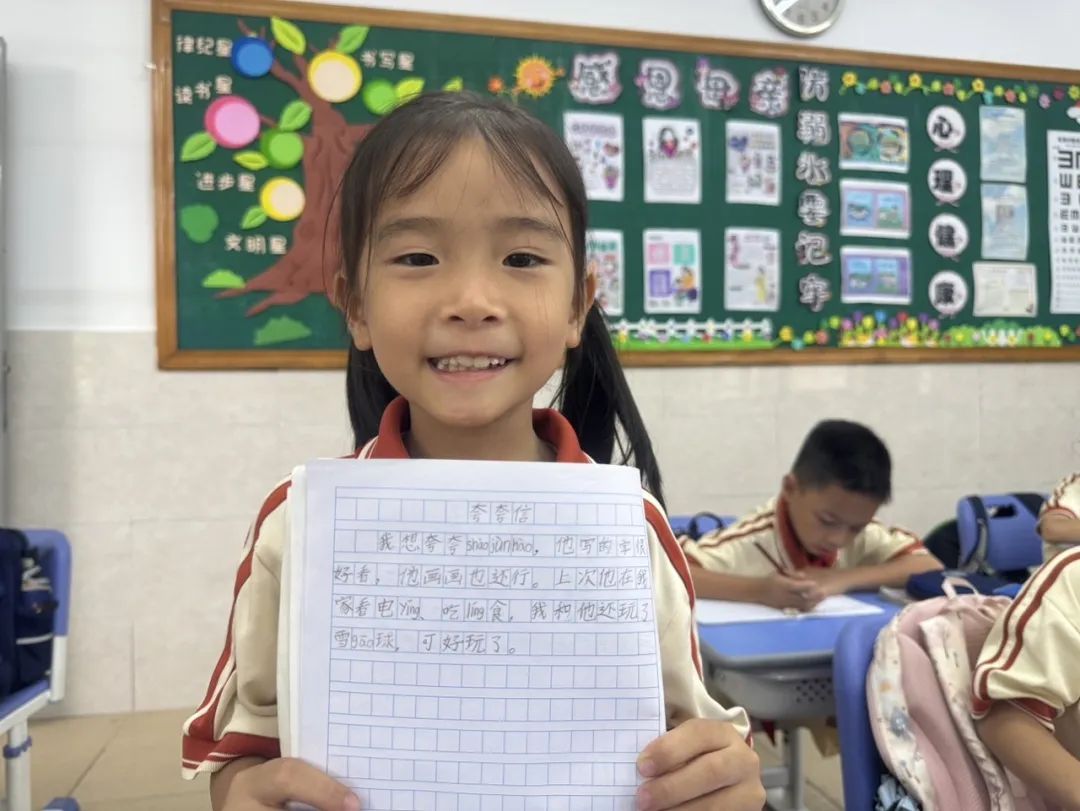 律纪星
书写星
读书星
进步星
文明星
感恩母亲
防溺水要记牢
心理健康
夸夸信
我想夸夸shàojùnhào，他写的字很
好看，他画画也还行。上次他在我
家看电yǐng、吃líng食，我和他还玩了
雪gāo球，可好玩了。